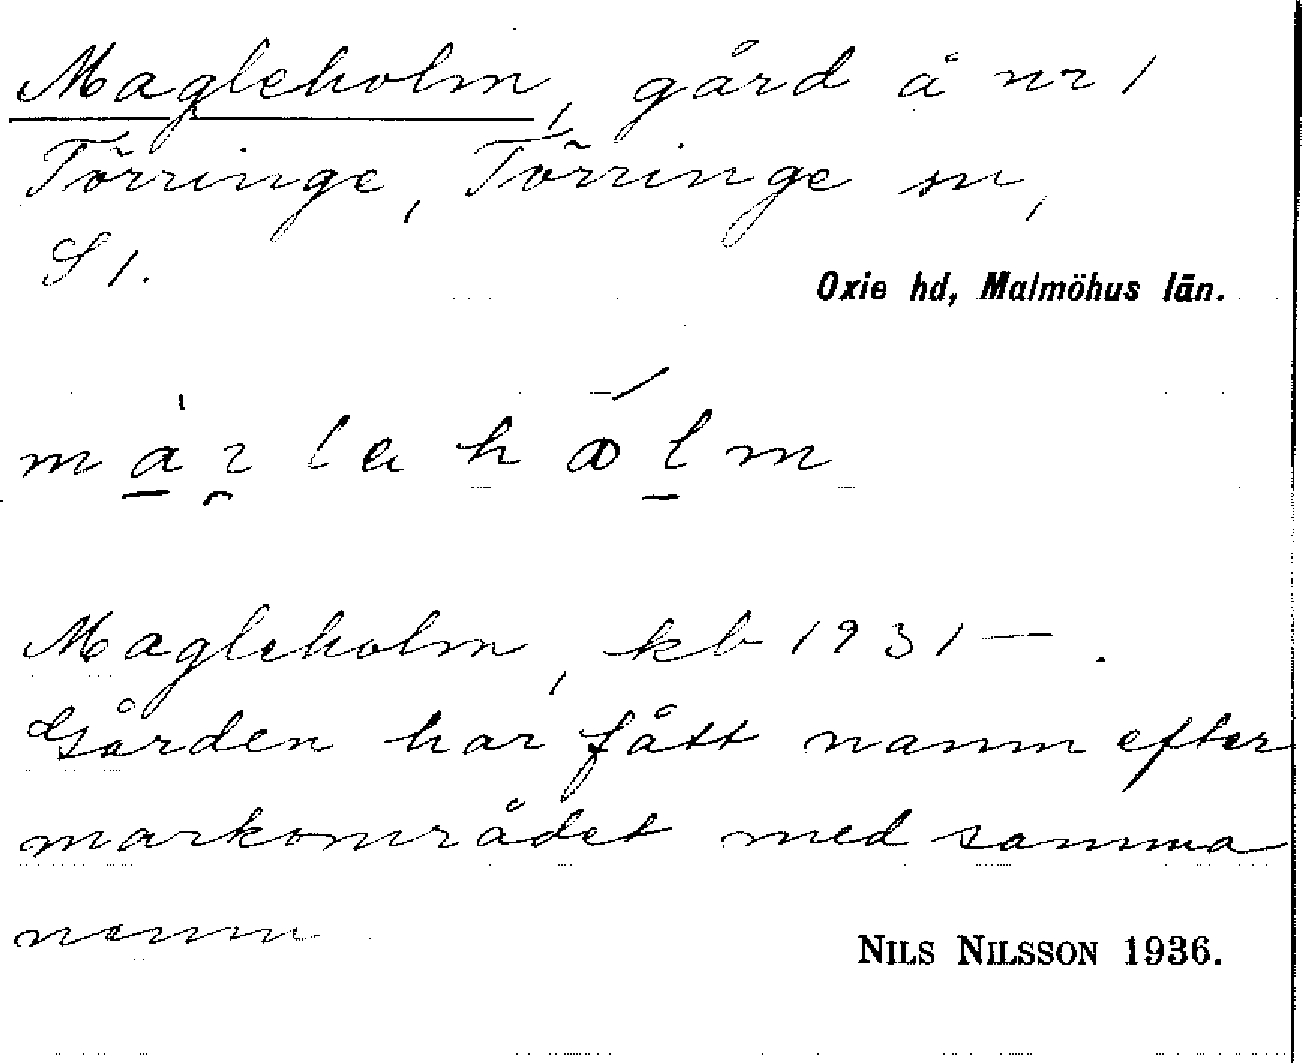 Magleholm, gård å nr 1
Törringe, Törringe sn,
S 1.
Oxie hd, Malmöhus län.
Magleholm, kb 1931—.
Gården har fått namn efter
markområdet med samma
namn
NILS NILSSON 1936.